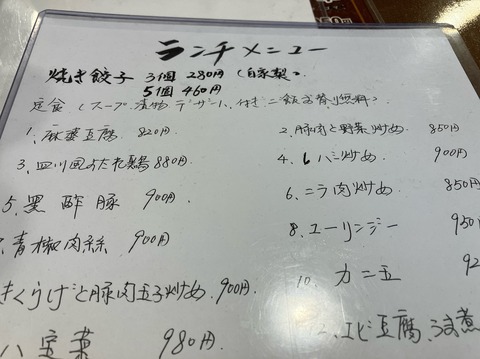 ランチメニュー
焼き餃子 3個 280円 (自家製)
5個 460円
定食 (スープ、漬物、デザート、付き ご飯お替り無料)
1、麻婆豆腐 820円
2、豚肉と野菜炒め 850円
3、四川風よだれ鶏 880円
4、レバニラ炒め 900円
5、黒酢豚 900円
6、ニラ肉炒め 850円
7、青椒肉絲 900円
8、ユーリンジー 950
きくらげと豚肉玉子炒め、900円
10、カニ玉 92
八宝菜 980円
エビ豆腐、うま煮